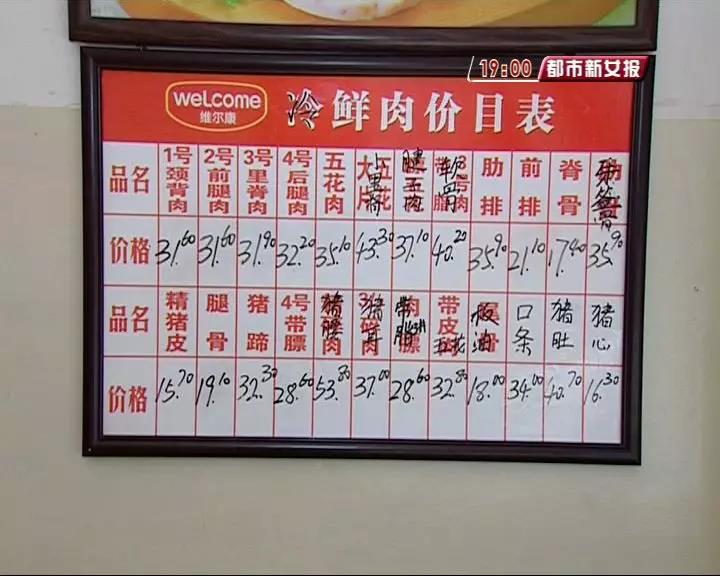 19:00 都市新女报
welcome
维尔康
冷鲜肉价目表
品名 1号颈背肉 2号前腿肉 3号里脊肉 4号后腿肉 五花肉 腱子肉 软骨 肋排 前排 脊骨
价格 31.60 31.60 31.90 32.20 35.10 43.30 37.10 40.20 35.90 21.10 17.40 35.90
品名 精猪皮 腿骨 猪蹄 4号带膘 猪腰 猪耳 带皮五花 板油 口条 猪肚 猪心
价格 15.70 19.10 32.30 28.60 53.80 37.00 28.60 32.80 18.00 34.00 40.70 16.30